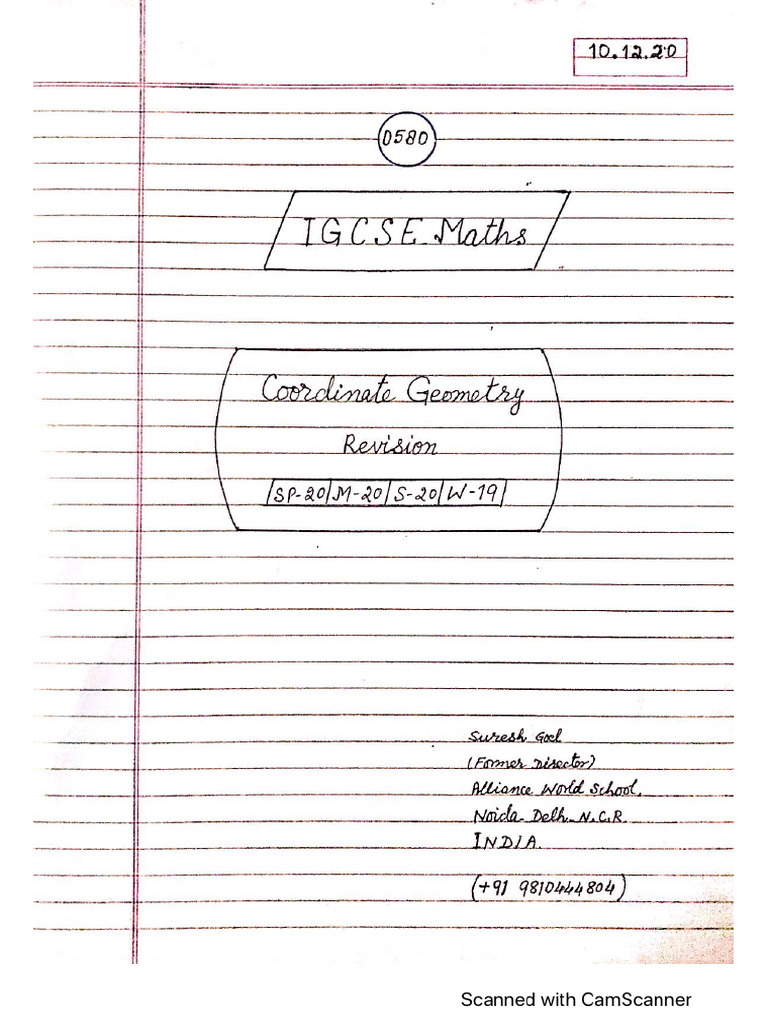 10.12.20
0580
IGCSE Maths
Coordinate Geometry
Revision
SP-20 M-20 S-20 W-19
Suresh Goel
(Former Director)
Alliance World School,
Noida Delh N.C.R.
INDIA.
(+91 9810444804)
Scanned with CamScanner